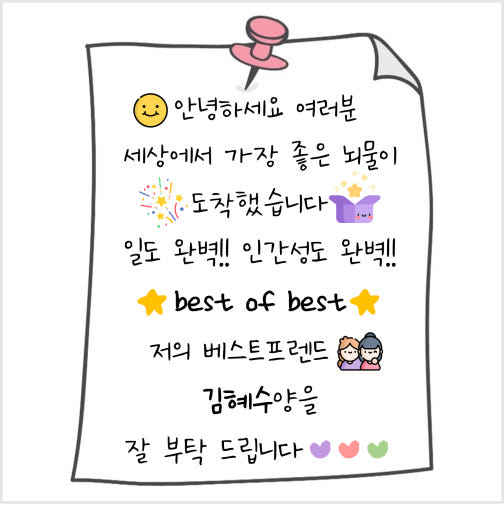 안녕하세요 여러분
세상에서 가장 좋은 뇌물이
도착했습니다
일도 완벽!! 인간성도 완벽!!
best of best
저의 베스트프렌드
김혜수양을
잘 부탁 드립니다